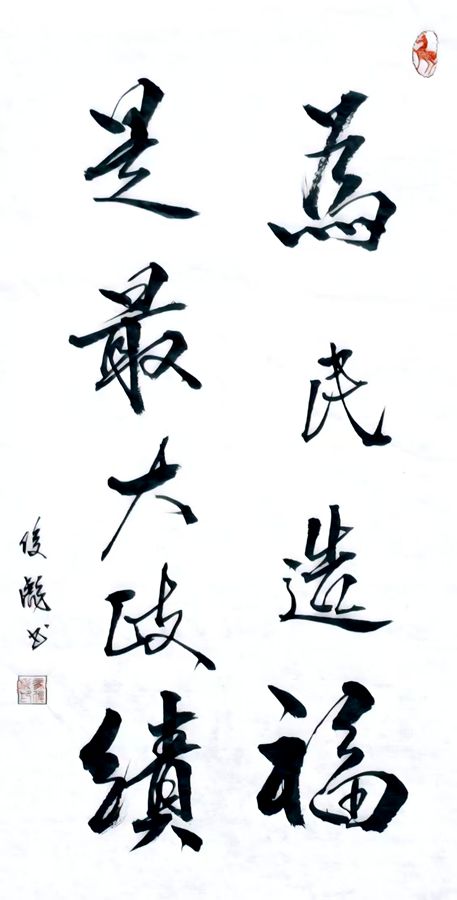 為民造福
是最大政績
俊彪书